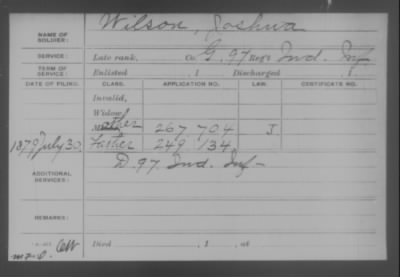 NAME OF SOLDIER: Wilson, Joshua
SERVICE: Late rank, Co. G. 97 Reg't Ind. Inf
TERM OF SERVICE: Enlisted , 1 Discharged , 1 .
DATE OF FILING. CLASS. APPLICATION NO. LAW. CERTIFICATE NO.
Invalid,
Widow,
Mother 267 704 J
1879 July 30. Father 249 134
ADDITIONAL SERVICES: D. 97. Ind. Inf
REMARKS:
Died , 1 , at